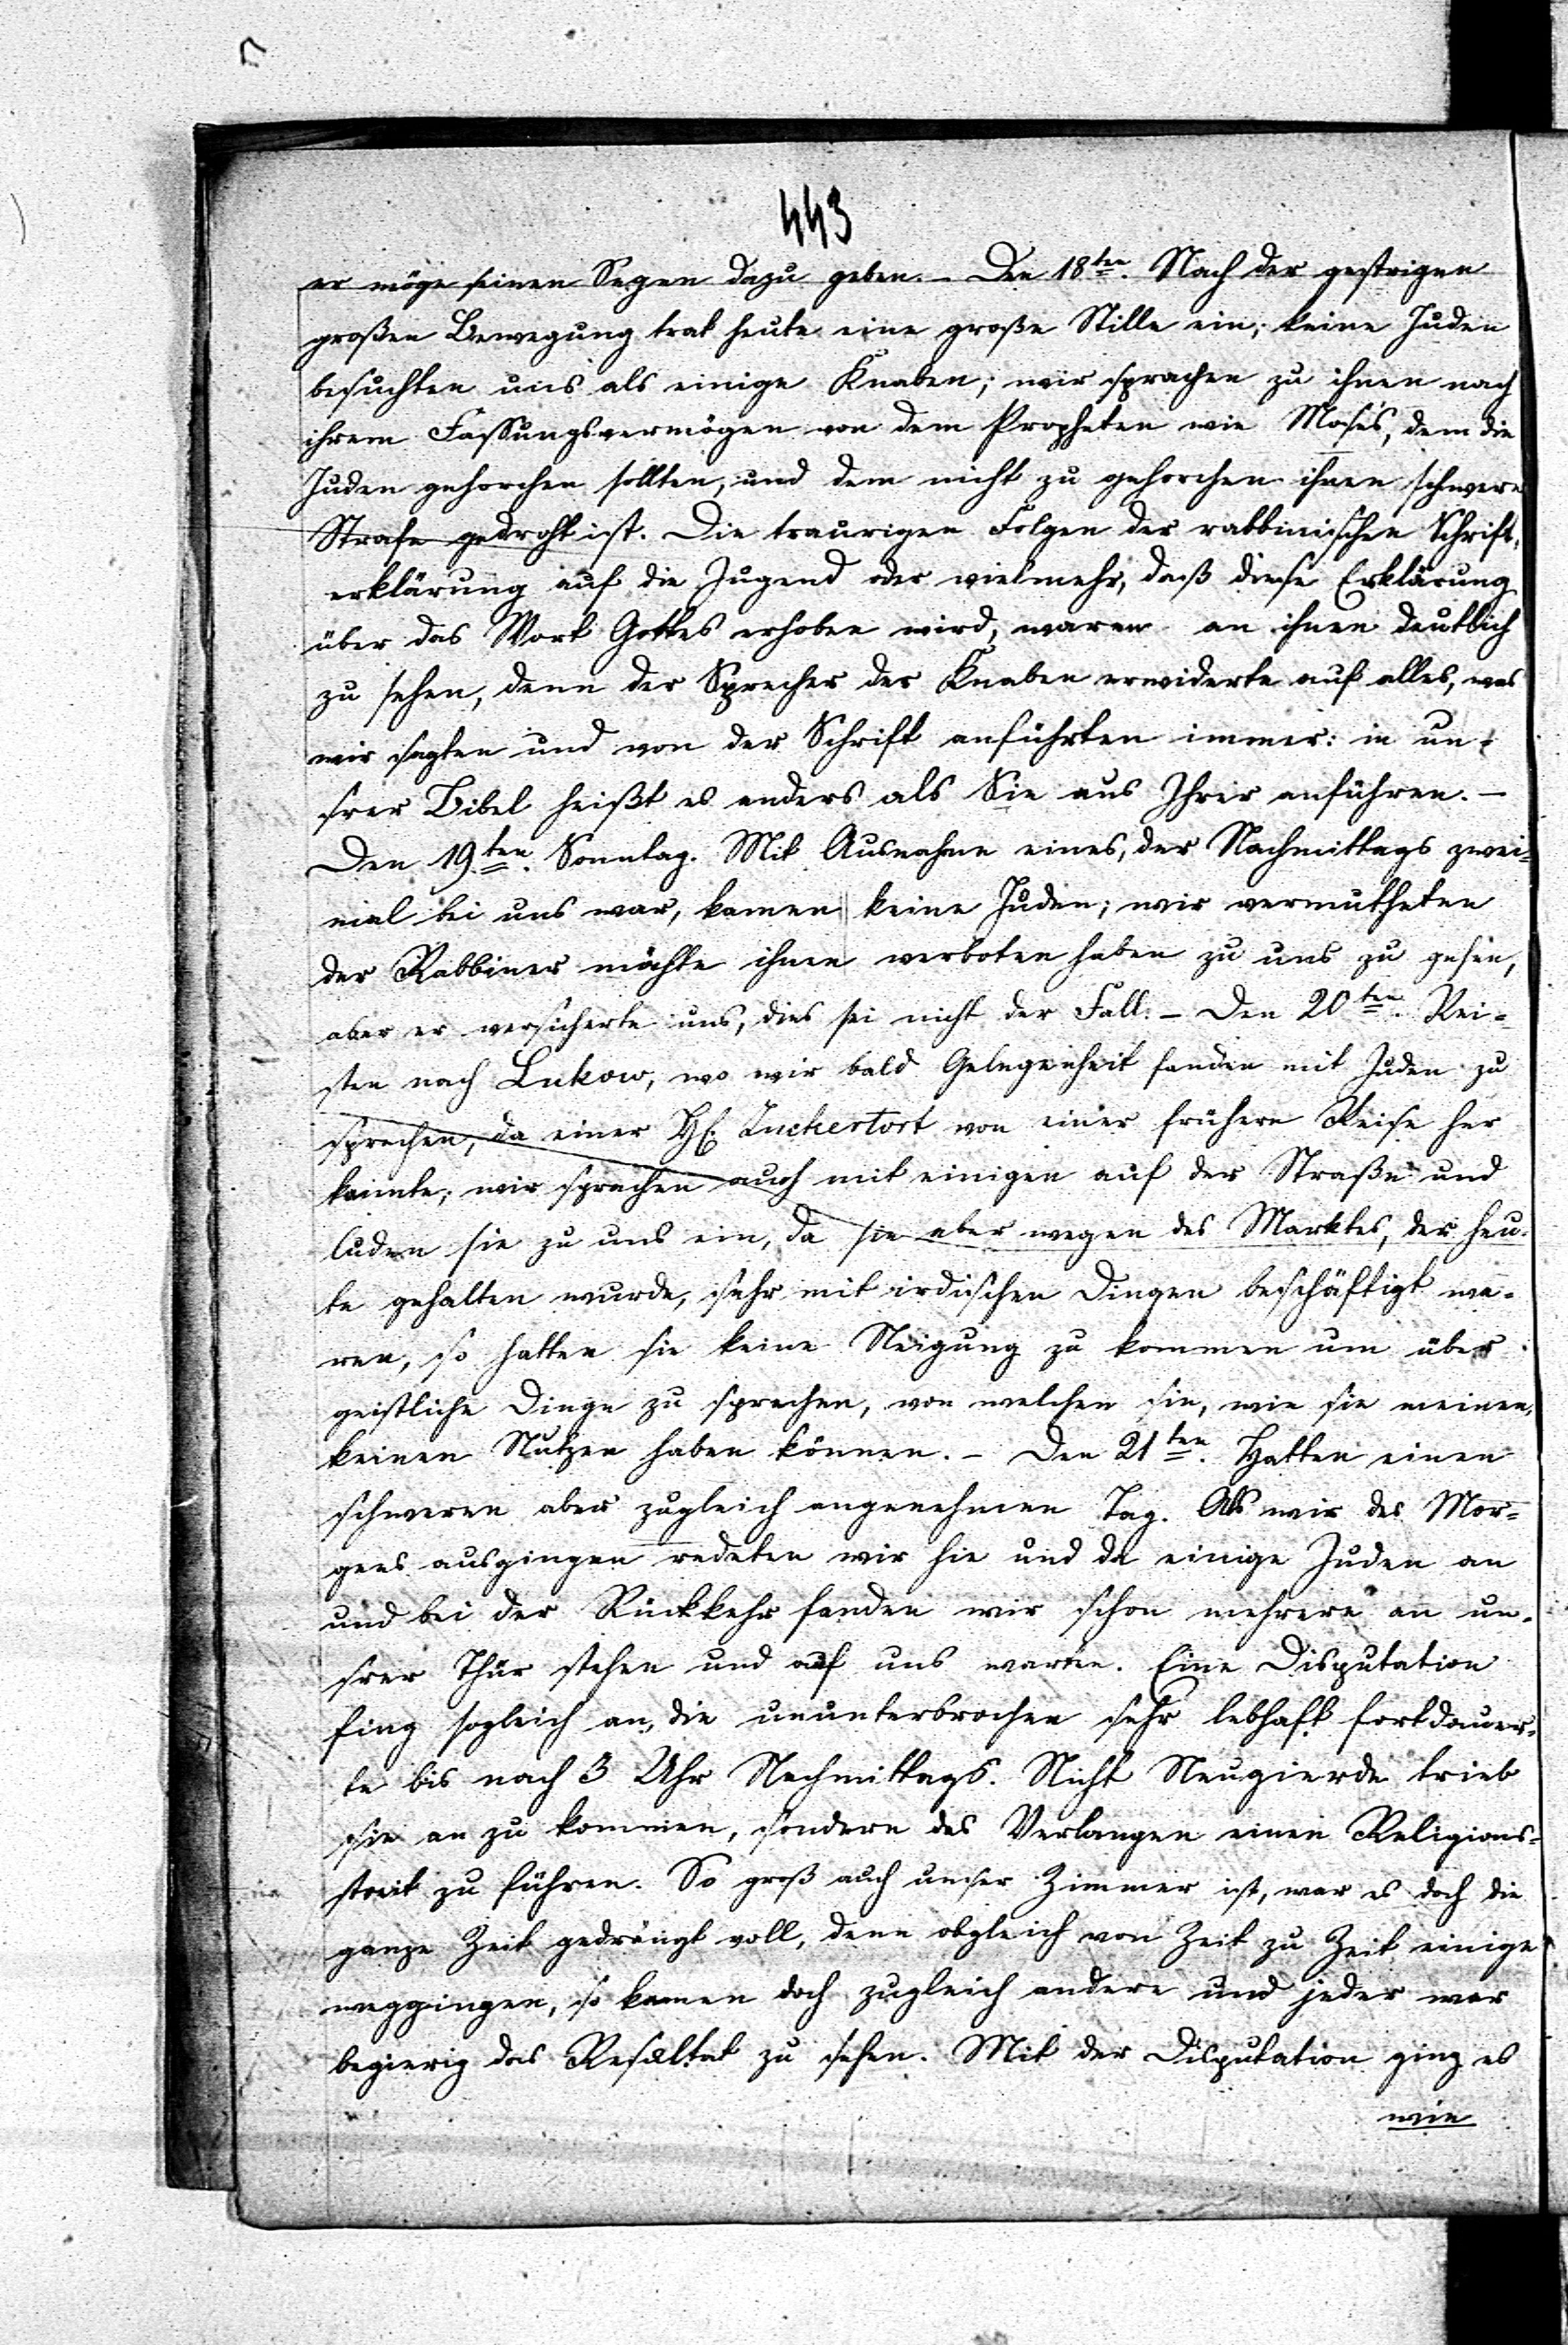 443
er möge seinen Segen dazu geben. – Den 18ten. Nach der gestrigen
großen Bewegung trat heute eine große Stille ein, keine Juden
besuchten uns als einige Knaben; wir sprachen zu ihnen nach
ihrem Fassungsvermögen von dem Propheten wie Moses, dem die
Juden gehorchen sollten, und dem nicht zu gehorchen ihnen schwere
Strafe gedroht ist. Die traurigen Folgen der rabbinischen Schrift-
erklärung auf die Jugend oder vielmehr, daß diese Erklärung
über das Wort Gottes erhoben wird, waren an ihnen deutlich
zu sehen, denn der Sprecher der Knaben erwiderte auf alles, was
wir sagten und von der Schrift anführten immer: in un-
srer Bibel heißt es anders als Sie aus Ihrer anführen. –
Den 19ten. Sonntag. Mit Ausnahme eines, der Nachmittags zwei-
mal bei uns war, kamen keine Juden; wir vermutheten
der Rabbiner möchte ihnen verboten haben zu uns zu gehen,
aber er versicherte uns, dies sei nicht der Fall. – Den 20ten. Rei-
sten nach Lukow, wo wir bald Gelegenheit fanden mit Juden zu
sprechen, da einer H. Zuckertort von einer frühern Reise her
kannte; wir sprachen auch mit einigen auf der Straße und
luden sie zu uns ein, da sie aber wegen des Marktes, der heu-
te gehalten wurde, sehr mit irdischen Dingen beschäftigt wa-
ren, so hatten sie keine Neigung zu kommen um über
geistliche Dinge zu sprechen, von welchen sie, wie sie meinen,
keinen Nutzen haben können. – Den 21ten. Hatten einen
schweren aber zugleich angenehmen Tag. Als wir des Mor-
gens ausgingen redeten wir hie und da einige Juden an
und bei der Rückkehr fanden wir schon mehrere an un-
srer Thür stehen und auf uns warten. Eine Disputation
fing sogleich an, die ununterbrochen sehr lebhaft fortdauer-
te bis nach 3 Uhr Nachmittags. Nicht Neugierde trieb
sie an zu kommen, sondern das Verlangen einen Religions-
streit zu führen. So groß auch unser Zimmer ist, war es doch die
ganze Zeit gedrängt voll, denn obgleich von Zeit zu Zeit einige
weggingen, so kamen doch zugleich andere und jeder war
begierig das Resultat zu sehen. Mit der Disputation ging es
wie